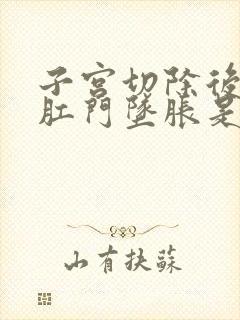 子宮切除後
肛門墜脹是
山有扶蘇